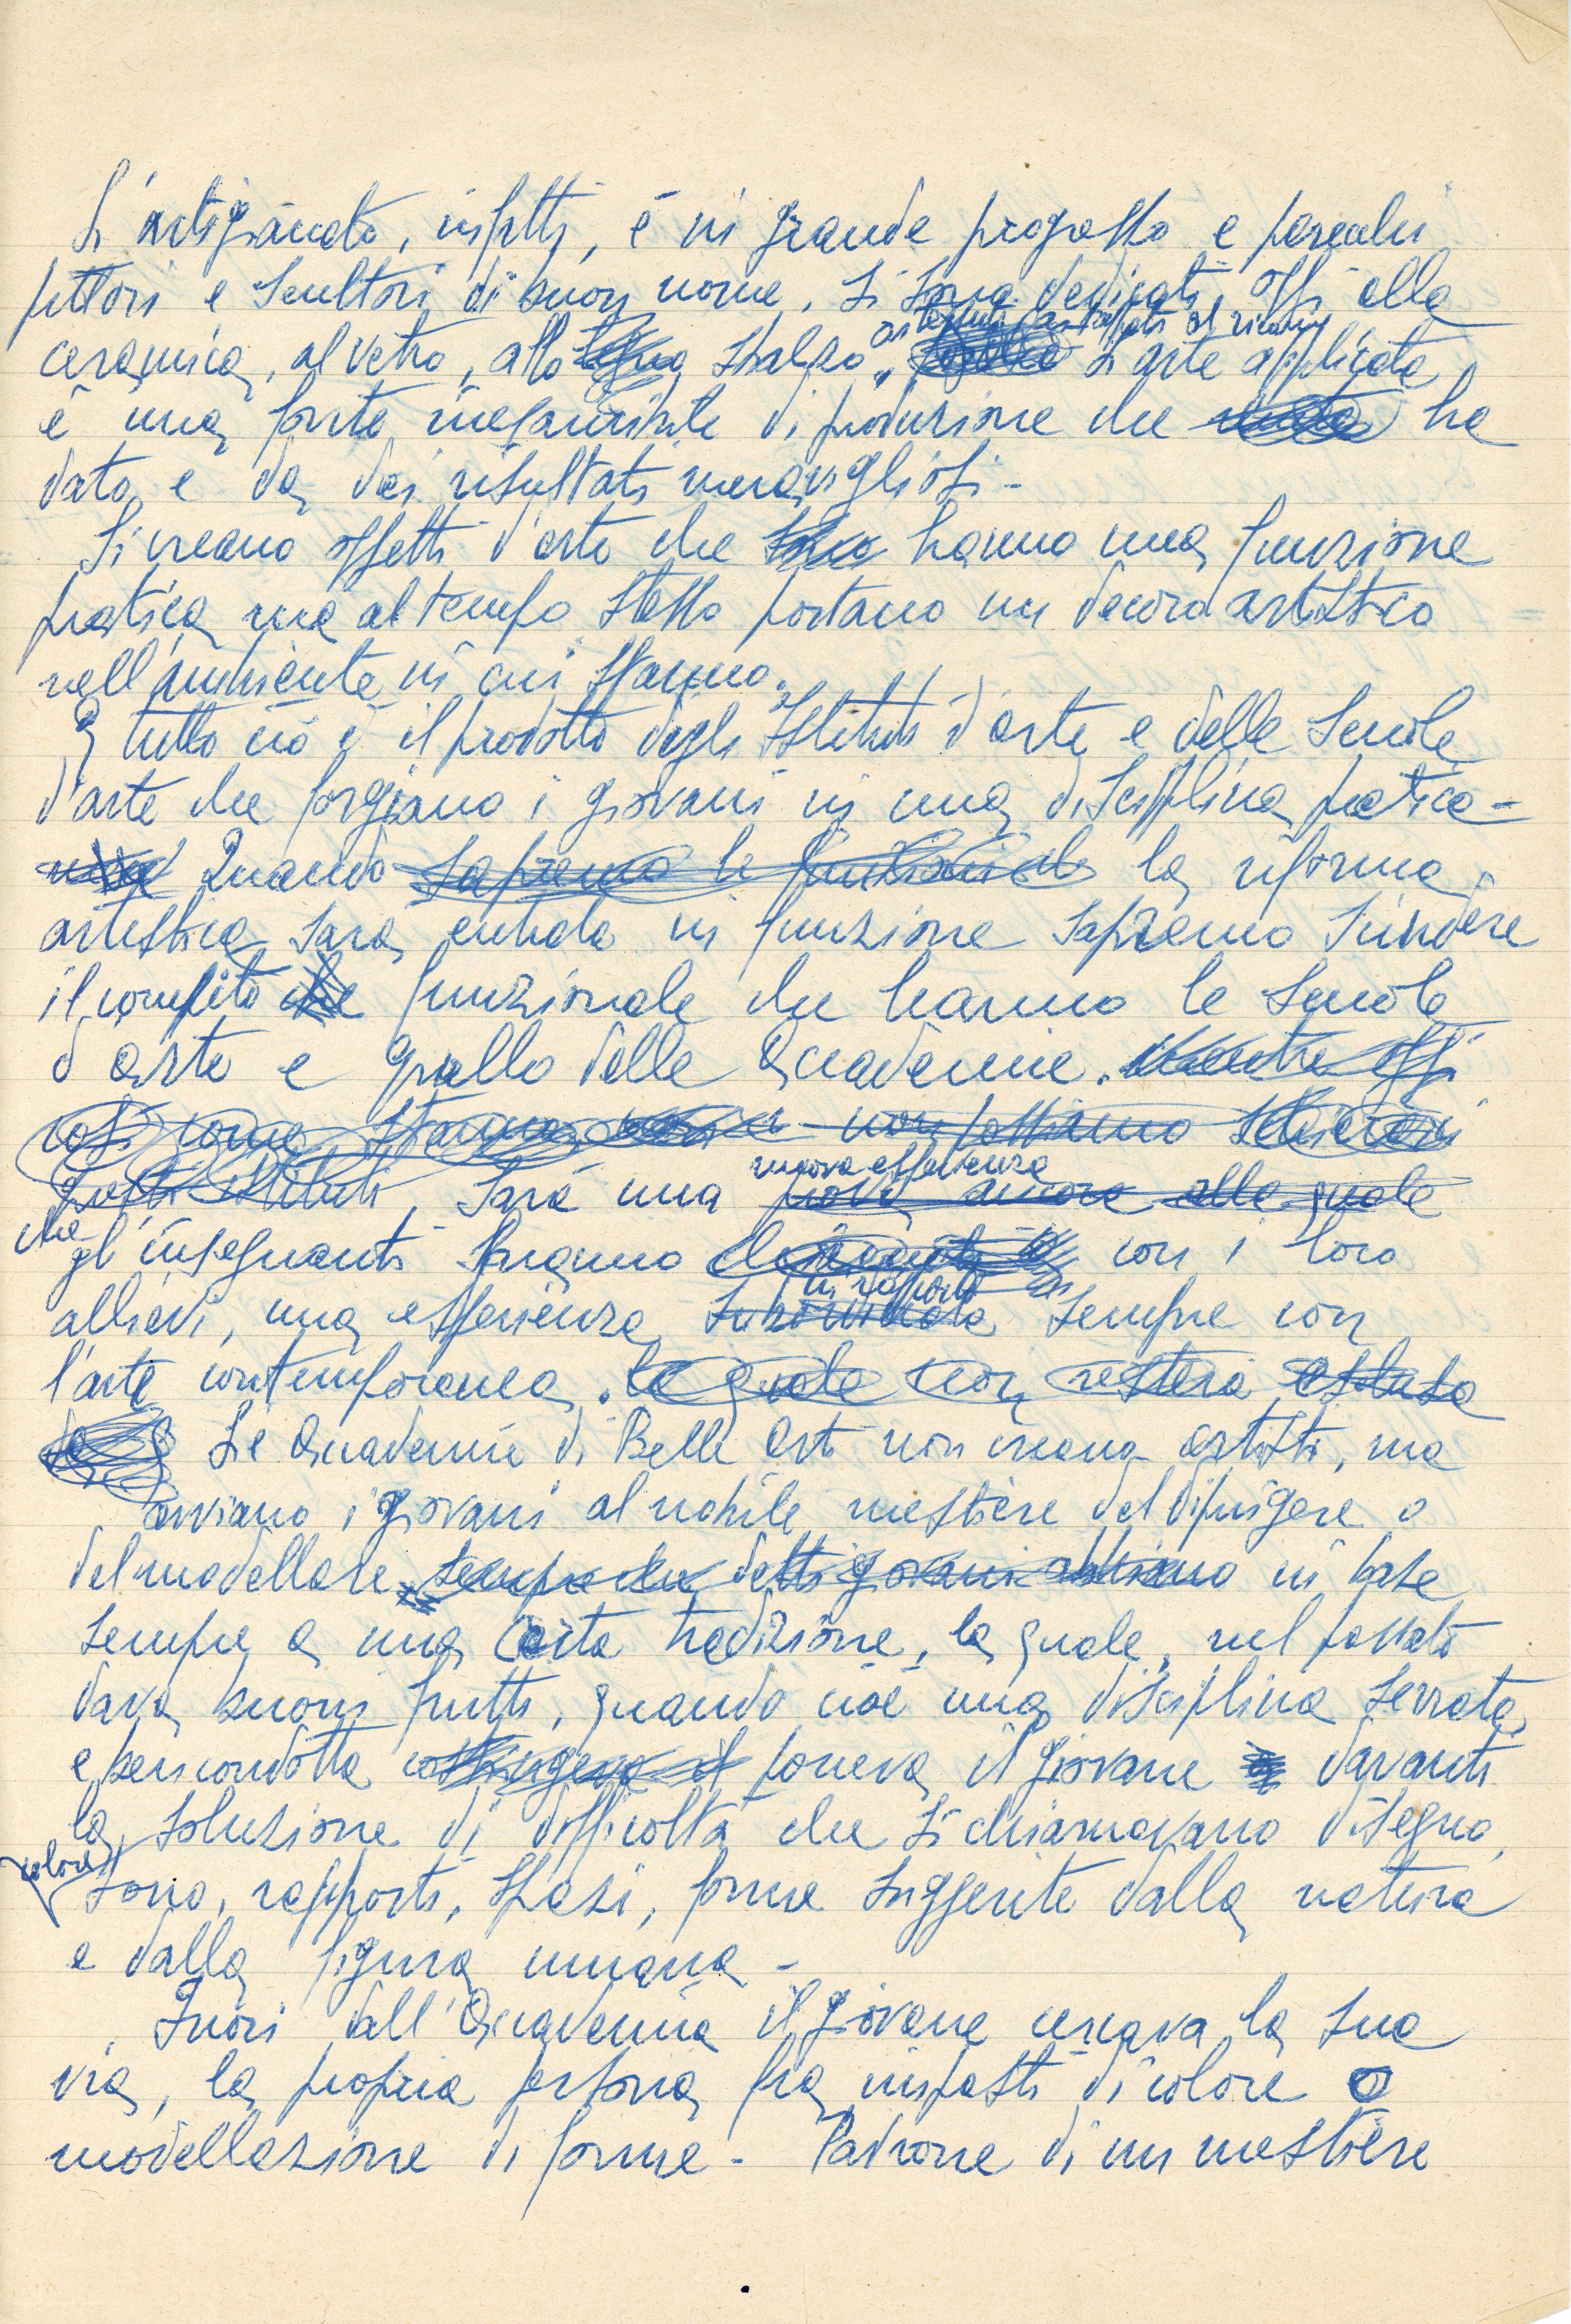 L'artigianato, infatti, è in grande progresso e parecchi
pittori e scultori di buon nome, si sono dedicati, oggi alla
ai tessuti al ricamo
ceramica, al vetro, allo sbalzo, L'arte applicata
è una fonte inesauribile di produzione che ha
dato e da dei risultati meravigliosi -
Si creano oggetti d'arte che hanno una funzione
pratica ma al tempo stesso portano un decoro artistico
nell'ambiente in cui stanno.
E tutto ciò è il prodotto degli Istituti d'arte e delle Scuole
d'arte che forgiano i giovani in una disciplina pratica -
Quando sapremo le funzioni la riforma
artistica sara entrata in funzione sapremo scindere
il compito che funzionale che hanno le scuole
d'arte e quello delle Accademie. mentre oggi
così come stanno non possiamo
questi istituti, Sarà una prova ancora alla quale
nuova esperienza
che
gl'insegnanti faranno con i loro
allievi, una esperienza subordinata sempre con
in rapporto
l'arte contemporanea. la quale non resterà esclusa
Le Accademie di Belle Arti non creano artisti, ma
avviano i giovani al nobile mestiere del dipingere o
del modellare sempre che detti giovani abbiano in base
sempre a una certa tradizione, la quale, nel passato
dava buoni frutti, quando cioè una disciplina serrata
e ben condotta costringeva il poneva il giovane davanti
la soluzione di difficoltà che si chiamavano disegno,
colore
tono, rapporti, spazi, forme suggerite dalla natura
e dalla figura umana -
Fuori dall'Accademia il giovane cercava la sua
via, la propria persona fra impasti di colore o
modellazione di forme - Padrone di un mestiere